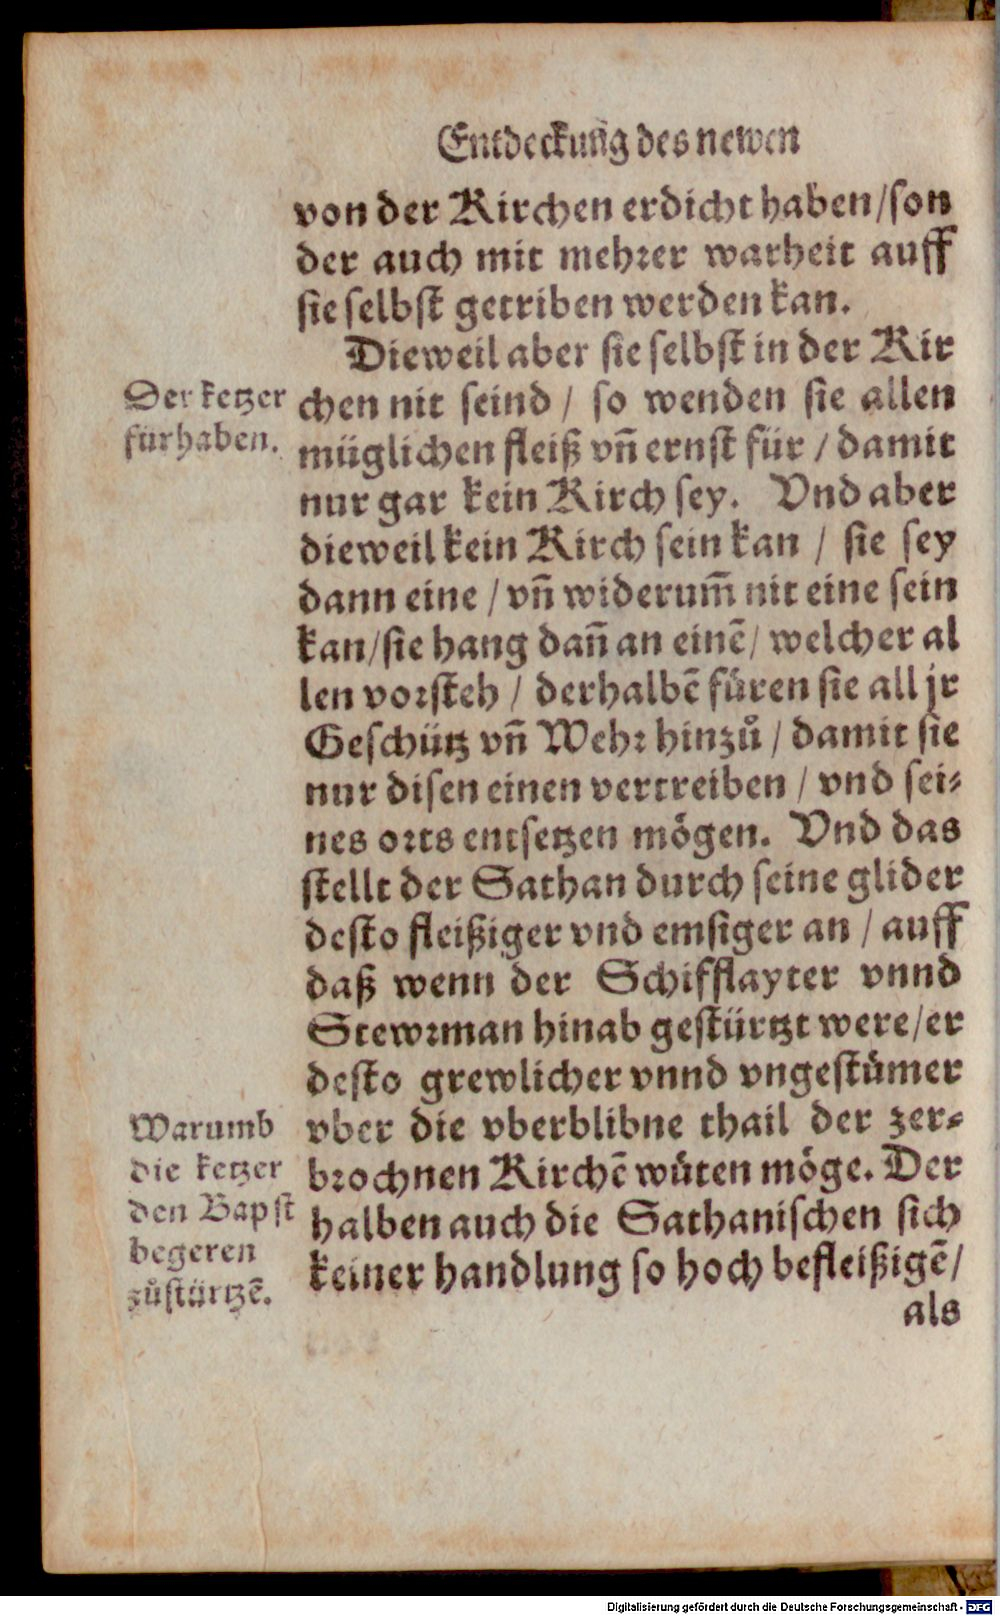 Entdeckung des newen
von der Kirchen erdicht haben/son
der auch mit mehrer warheit auff
sie selbst getriben werden kan.
Dieweil aber sie selbst in der Kir
Der ketzer
fürhaben.
chen nit seind / so wenden sie allen
müglichen fleiß vn̄ ernst für / damit
nur gar kein Kirch sey. Vnd aber
dieweil kein Kirch sein kan / sie sey
dann eine / vn̄ widerum̄ nit eine sein
kan/sie hang dan̄ an einē/ welcher al
len vorsteh / derhalbē füren sie all jr
Geschütz vn̄ Wehr hinzů / damit sie
nur disen einen vertreiben / vnd sei⸗
nes orts entsetzen mögen. Vnd das
stellt der Sathan durch seine glider
desto fleißiger vnd emsiger an / auff
daß wenn der Schifflayter vnnd
Stewrman hinab gestürtzt were/er
desto grewlicher vnnd vngestümer
Warumb
die ketzer
den Bapst
begeren
zůstürtzē.
vber die vberblibne thail der zer⸗
brochnen Kirchē wüten möge. Der
halben auch die Sathanischen sich
keiner handlung so hoch befleißigē/
als
Digitalisierung gefördert durch die Deutsche Forschungsgemeinschaft - DFG